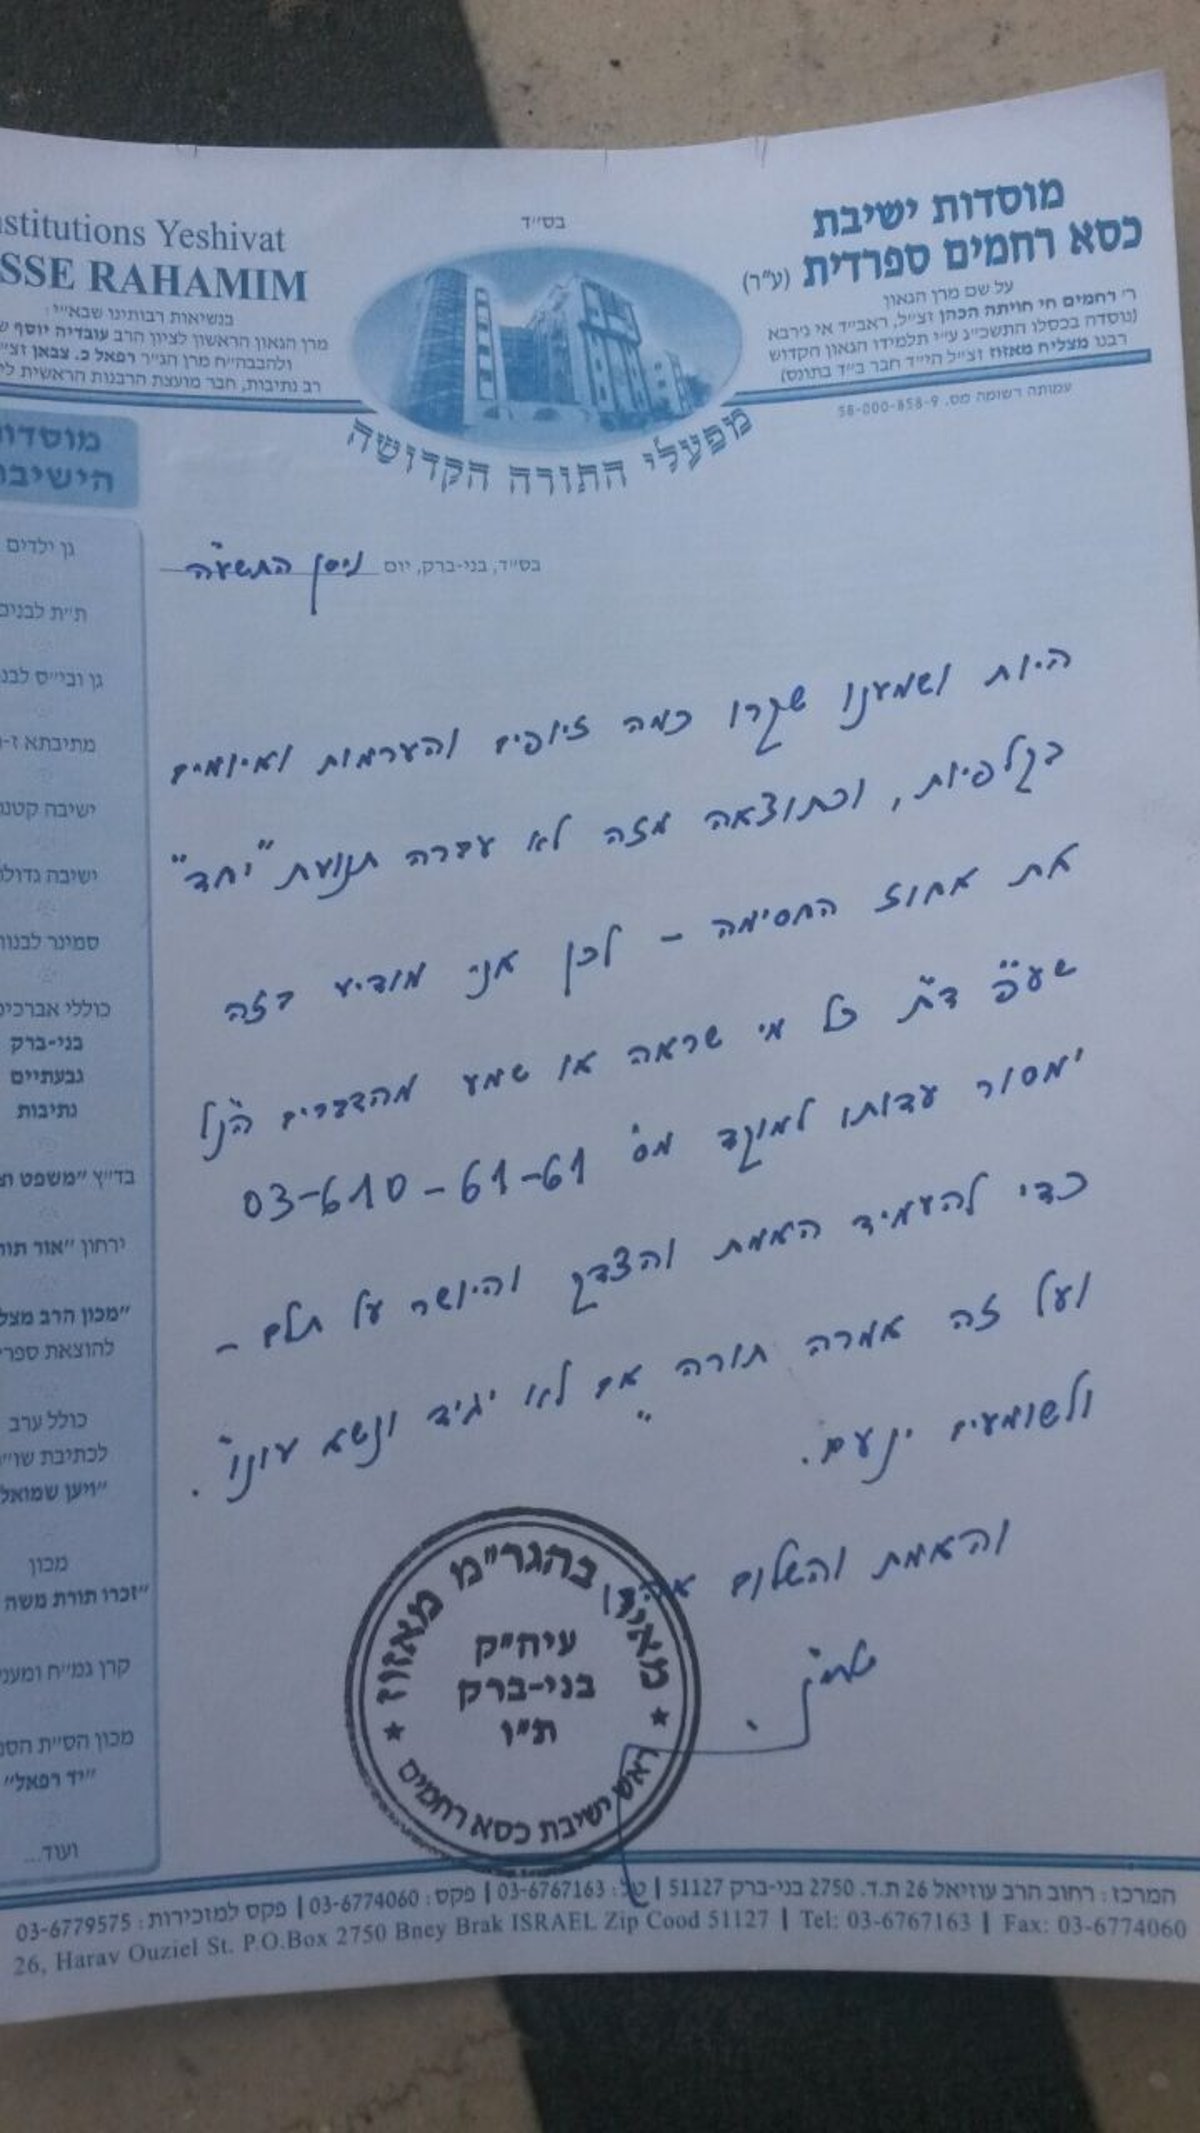 בס״ד
מוסדות ישיבת
כסא רחמים ספרדית (ע״ר)
על שם מרן הגאון
ר׳ רחמים חי חויתה הכהן זצ״ל, ראב״ד אי ג׳רבא
(נוסדה בכסלו התשכ״ג ע״י תלמידו הגאון הקדוש
רבנו מצליח מאזוז זצ״ל הי״ד חבר ב״ד בתונס)
עמותה רשומה מס. 58-000-858-9
stitutions Yeshivat
SSE RAHAMIM
בנשיאות רבותינו שבא״י:
מרן הגאון הראשון לציון הרב עובדיה יוסף
ולהבבה״ח מרן הגר״ר רפאל כ. צבאן זצ״
רב נתיבות, חבר מועצת הרבנות הראשית
מפעלי התורה הקדושה
בס״ד, בני-ברק, יום ניסן התשע״ה
היות ושמענו שקרו כמה זיופים והערמות ואיומים
בקלפיות, וכתוצאה מזה לא עברה תנועת "יחד"
את אחוז החסימה – לכן אני מודיע בזה
שע״פ ד״ת כל מי שראה או שמע מהדברים הנ״ל
ימסור עדותו למוקד מס׳ 03-610-61-61
כדי להעמיד האמת והצדק והיושר על תלם –
ועל זה אמרה תורה "אם לא יגיד ונשא עונו".
ולשומעים ינעם.
והאמת והשלום
מאיר בהגר״מ מאזוז
עיה״ק
בני-ברק
ת״ו
ראש ישיבת כסא רחמים
מוסדו
הישיבה
גן ילדים
ת״ת לבנים
גן ובי״ס לבנ
מתיבתא
ישיבה קטנ
ישיבה גדולה
סמינר לבנות
כוללי אברכים
בני-ברק
גבעתיים
נתיבות
בד״ץ "משפט
ירחון "אור תור
"מכון הרב מצל
להוצאת ספרי
כולל ערב
לכתיבת שו״
"ויען שמואל
מכון
"זכרו תורת משה
קרן גמ״ח ומענ
מכון הסי״ת
"יד רפאל"
ועוד...
המרכז: רחוב הרב עוזיאל 26 ת.ד. 2750 בני-ברק 51127 | טל: 03-6767163 | פקס: 03-6774060 | פקס למזכירות: 03-6779575
26, Harav Ouziel St. P.O.Box 2750 Bney Brak ISRAEL Zip Cood 51127 | Tel: 03-6767163 | Fax: 03-6774060